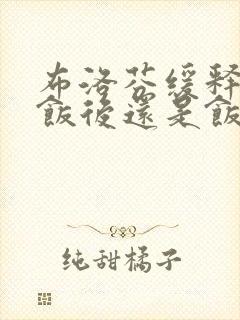 布洛芬缓释
飯後還是飯
纯甜橘子